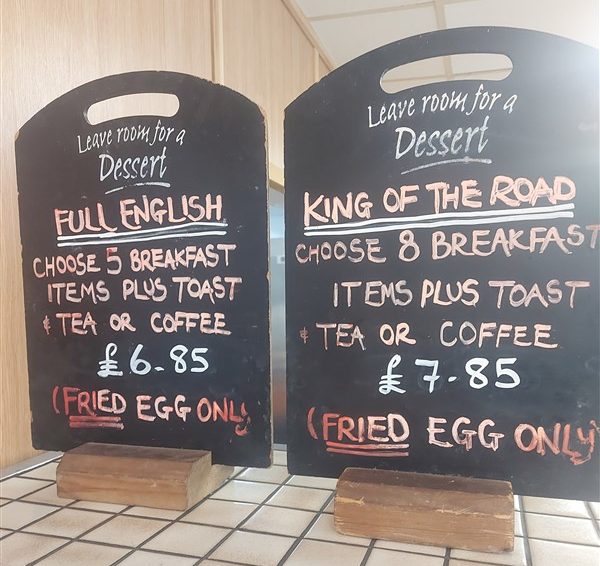 Leave room for a
Dessert
FULL ENGLISH
CHOOSE 5 BREAKFAST
ITEMS PLUS TOAST
& TEA OR COFFEE
£6.85
(FRIED EGG ONLY)
Leave room for a
Dessert
KING OF THE ROAD
CHOOSE 8 BREAKFAST
ITEMS PLUS TOAST
& TEA OR COFFEE
£7.85
(FRIED EGG ONLY)